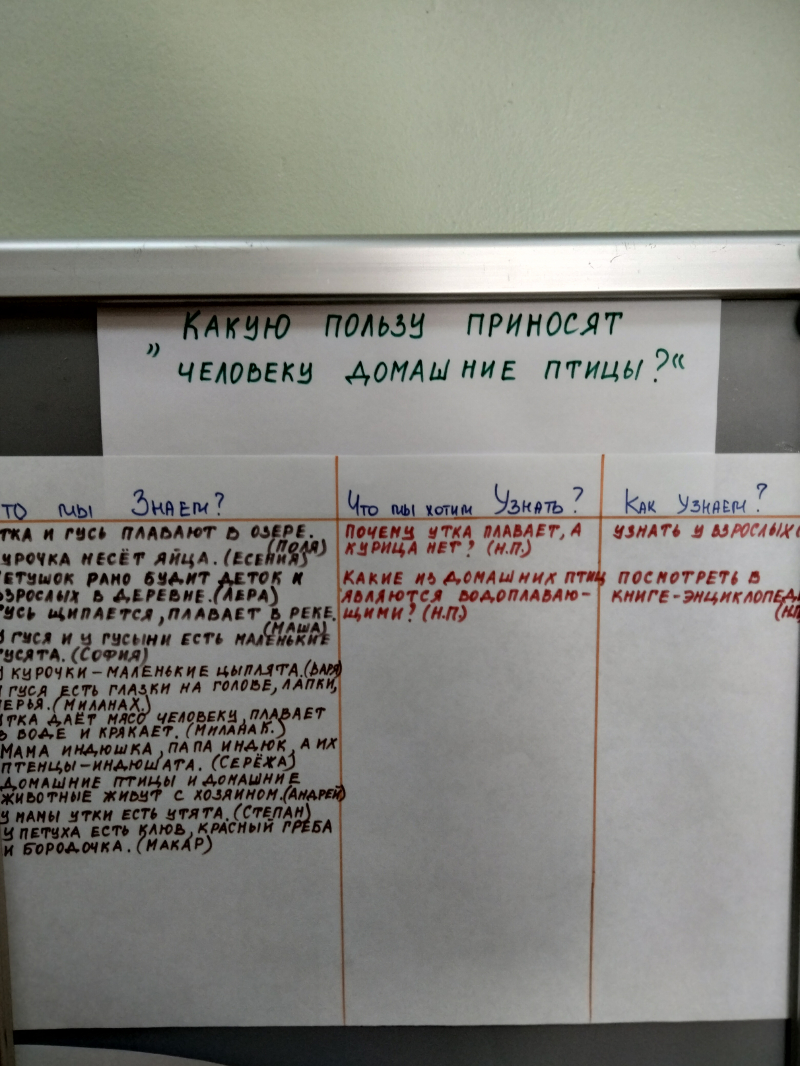 КАКУЮ ПОЛЬЗУ ПРИНОСЯТ
„ ЧЕЛОВЕКУ ДОМАШНИЕ ПТИЦЫ?“
ТО МЫ ЗНАЕМ?
ТКА И ГУСЬ ПЛАВАЮТ В ОЗЕРЕ.
(ПОЛЯ)
УРОЧКА НЕСЁТ ЯЙЦА. (ЕСЕНИЯ)
ЕТУШОК РАНО БУДИТ ДЕТОК И
ВЗРОСЛЫХ В ДЕРЕВНЕ. (ЛЕРА)
ГУСЬ ЩИПАЕТСЯ, ПЛАВАЕТ В РЕКЕ.
(МАША)
У ГУСЯ И У ГУСЫНИ ЕСТЬ МАЛЕНЬКИЕ
ГУСЯТА. (СОФИЯ)
У КУРОЧКИ – МАЛЕНЬКИЕ ЦЫПЛЯТА. (ВАРЯ)
У ГУСЯ ЕСТЬ ГЛАЗКИ НА ГОЛОВЕ, ЛАПКИ,
ПЕРЬЯ. (МИЛАНА Х.)
УТКА ДАЁТ МЯСО ЧЕЛОВЕКУ, ПЛАВАЕТ
В ВОДЕ И КРЯКАЕТ. (МИЛАНА К.)
МАМА ИНДЮШКА, ПАПА ИНДЮК, А ИХ
ПТЕНЦЫ – ИНДЮШАТА. (СЕРЁЖА)
ДОМАШНИЕ ПТИЦЫ И ДОМАШНИЕ
ЖИВОТНЫЕ ЖИВУТ С ХОЗЯИНОМ. (АНДРЕЙ)
У МАМЫ УТКИ ЕСТЬ УТЯТА. (СТЕПАН)
У ПЕТУХА ЕСТЬ КЛЮВ, КРАСНЫЙ ГРЕБА
И БОРОДОЧКА. (МАКАР)
ЧТО МЫ ХОТИМ УЗНАТЬ?
ПОЧЕМУ УТКА ПЛАВАЕТ, А
КУРИЦА НЕТ? (Н.П.)
КАКИЕ ИЗ ДОМАШНИХ ПТИЦ
ЯВЛЯЮТСЯ ВОДОПЛАВАЮ-
ЩИМИ? (Н.П.)
КАК УЗНАЕМ?
УЗНАТЬ У ВЗРОСЛЫХ
ПОСМОТРЕТЬ В
КНИГЕ-ЭНЦИКЛОПЕД